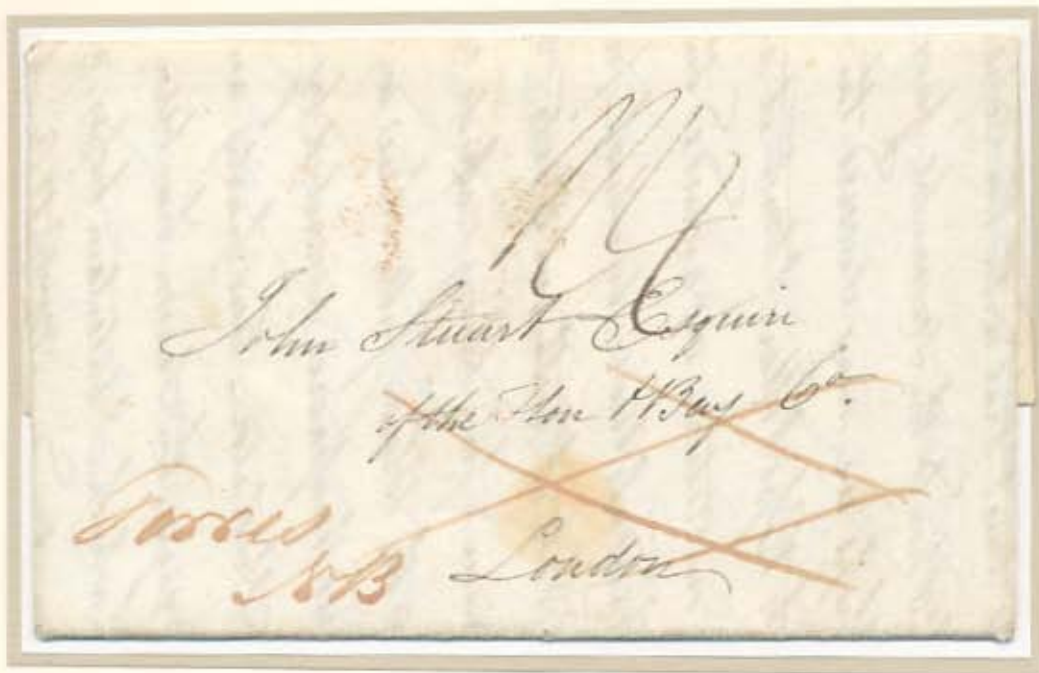 John Stuart Esquire
of the Hon HBays Co.
London
Forres
NB